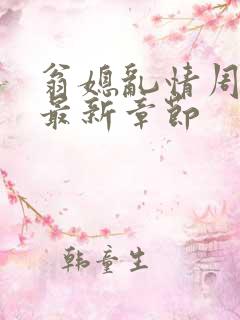 翁媳乱情周
最新章节
韩童生